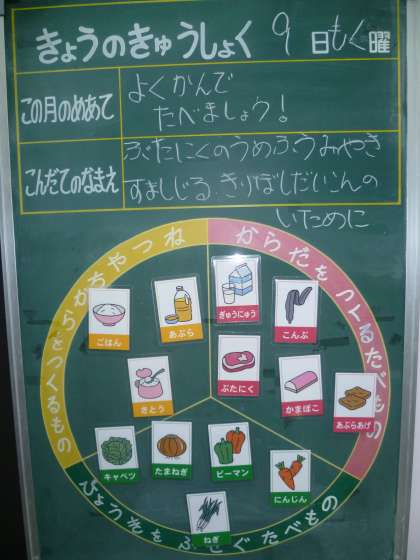 きょうのきゅうしょく 9日もく曜
この月のめあて
よくかんで
たべましょう!
こんだてのなまえ
ぶたにくのうめふうみやき
すましじる、きりぼしだいこんの
いために
ねつやちからをつくるもの
からだをつくるたべもの
ごはん
あぶら
ぎゅうにゅう
こんぶ
さとう
ぶたにく
かまぼこ
あぶらあげ
キャベツ
たまねぎ
ピーマン
にんじん
ねぎ
びょうきをふせぐたべもの